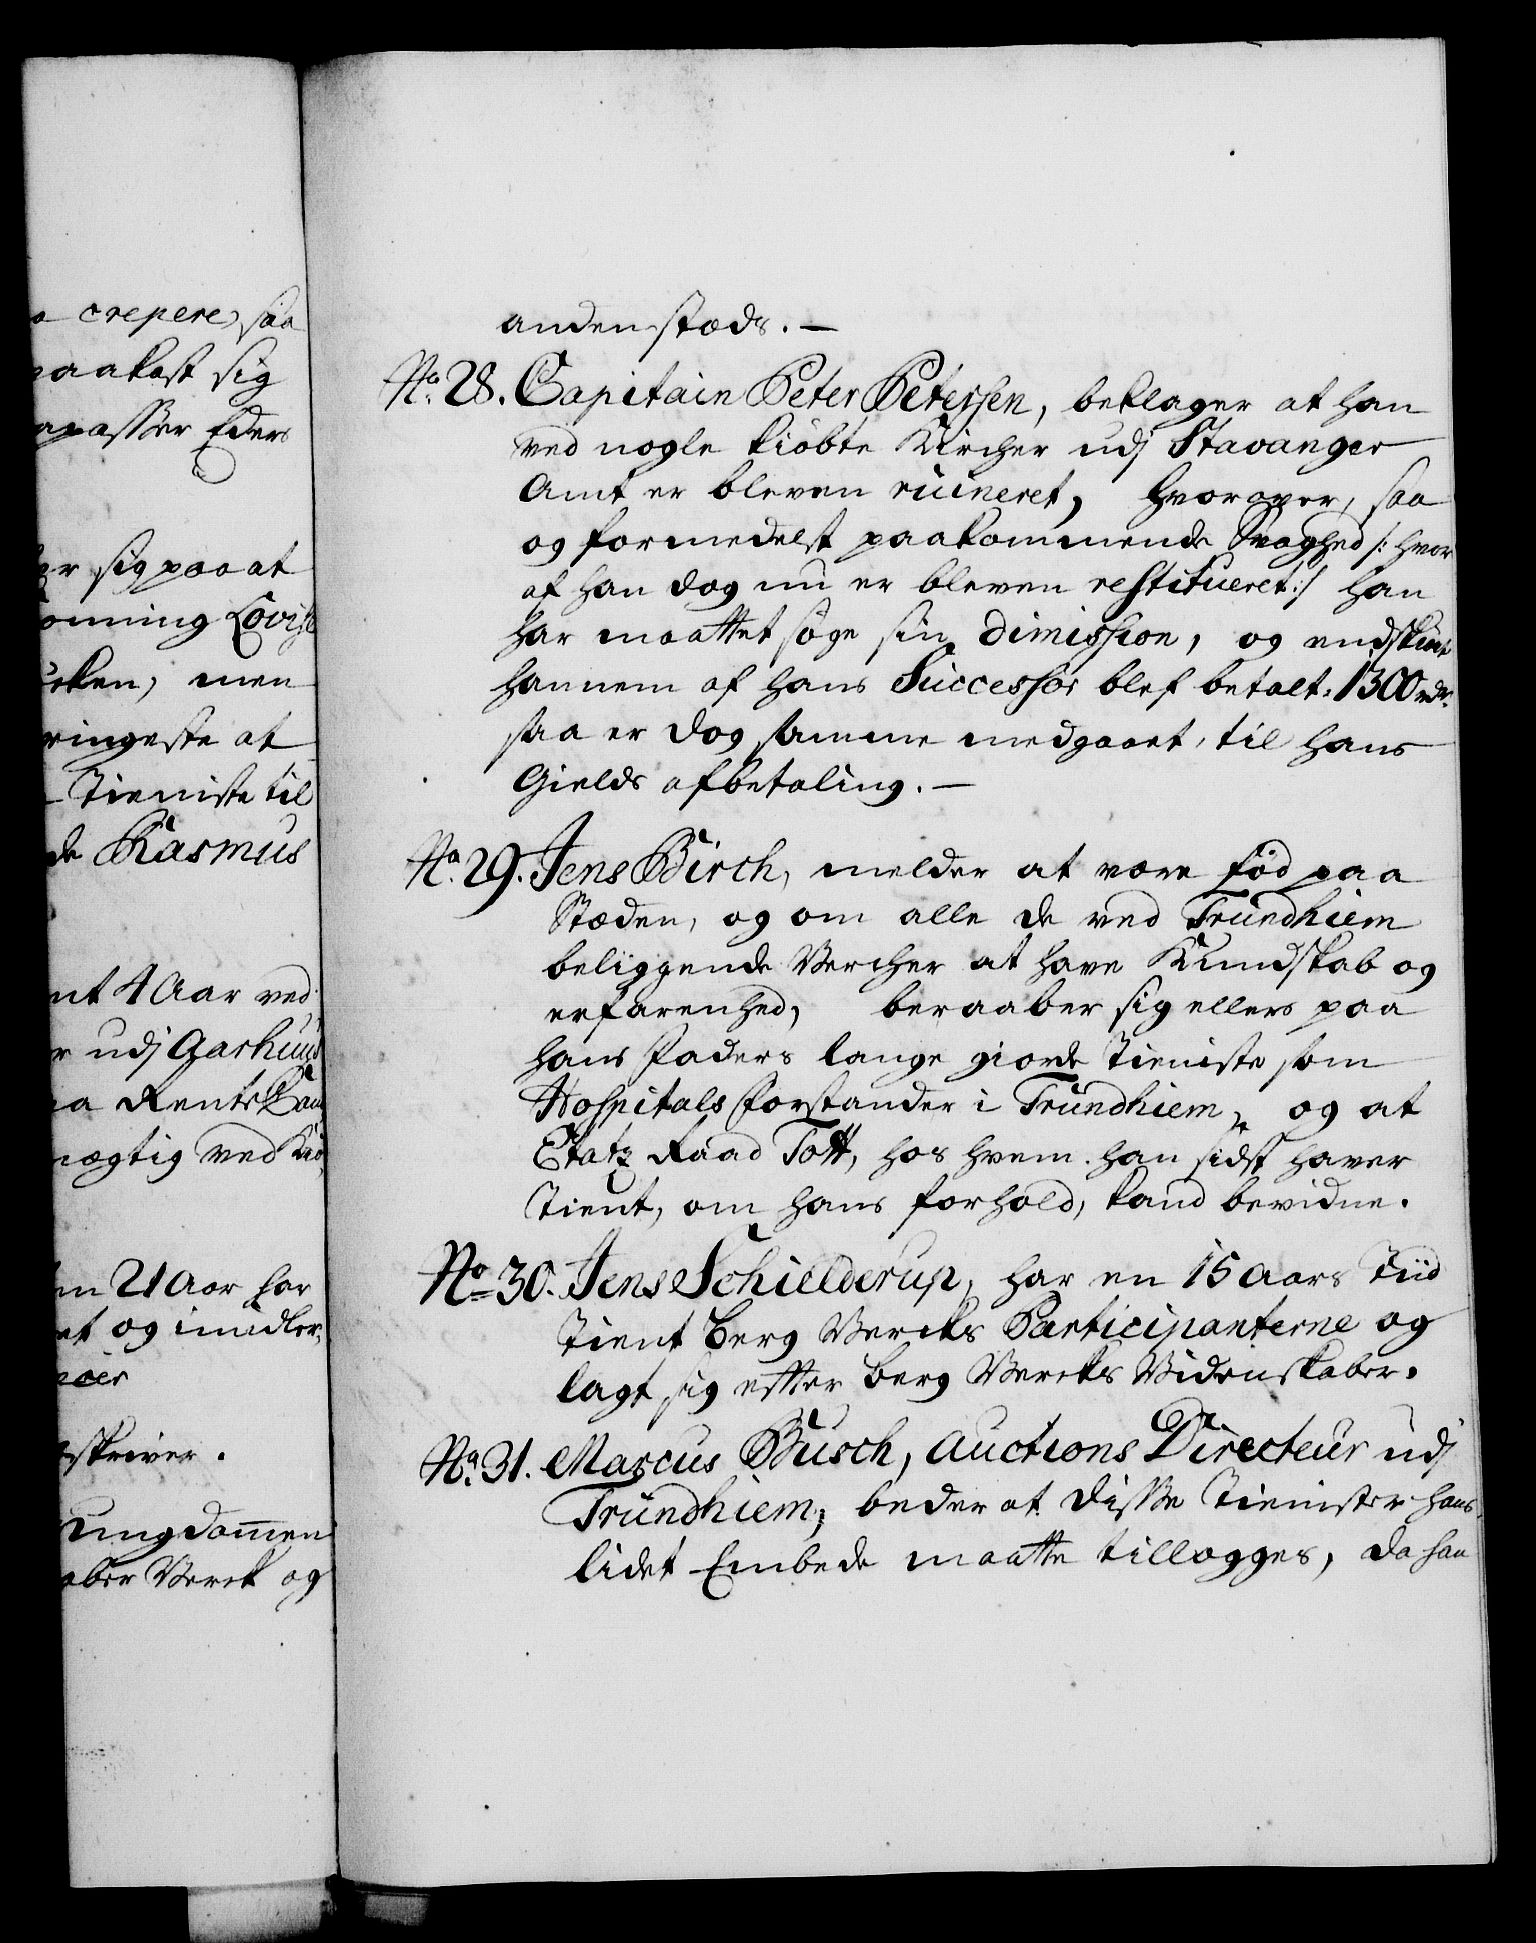 crepere, saa
paakast sig
apasser Eders
sig paa at
onning Lovise
cken, men
ringeste at
Tieniste til
de Rasmus
nt 4 Aar ved
r udj Aarhuus
a Rente
mægtig ved
en 21 Aar har
et og imidler,
skriver.
Ungdommen
aber Verck og
andenstæds. —
No. 28. Capitain Peter Peterssen, beklager at han
ved nogle kiöbte Kircher udj Stavanger
Amt er bleven ruineret, hvorover, saa
og formedelst paakommende Svaghed /: hvor
af han dog nu er bleven restitueret :/ han
har maattet söge sin dimission, og endskiönt
hannem af hans Successor blef betalt 1300 rdr.
saa er dog samme medgaaet, til hans
Gields afbetaling. —
No. 29. Jens Birch, melder at være föd paa
Stæden, og om alle de ved Trundhiem
beliggende Vercher at have Kundskab og
erfarenhed, beraaber sig ellers paa
hans Faders lange giorde Tieniste som
Hospitals Forstander i Trundhiem, og at
Etatz Raad Tott, hos hvem han sidst haver
Tient, om hans forhold, kand bevidne.
No. 30. Jens Schielderup, har en 15 Aars Tiid
Tient Berg Vercks Participanterne og
lagt sig effter Berg Vercks Videnskaber.
No. 31. Marcus Busch, Auctions Directeur udj
Trundhiem, beder at disse Tienister hans
lidet Embede maatte tillegges, da han